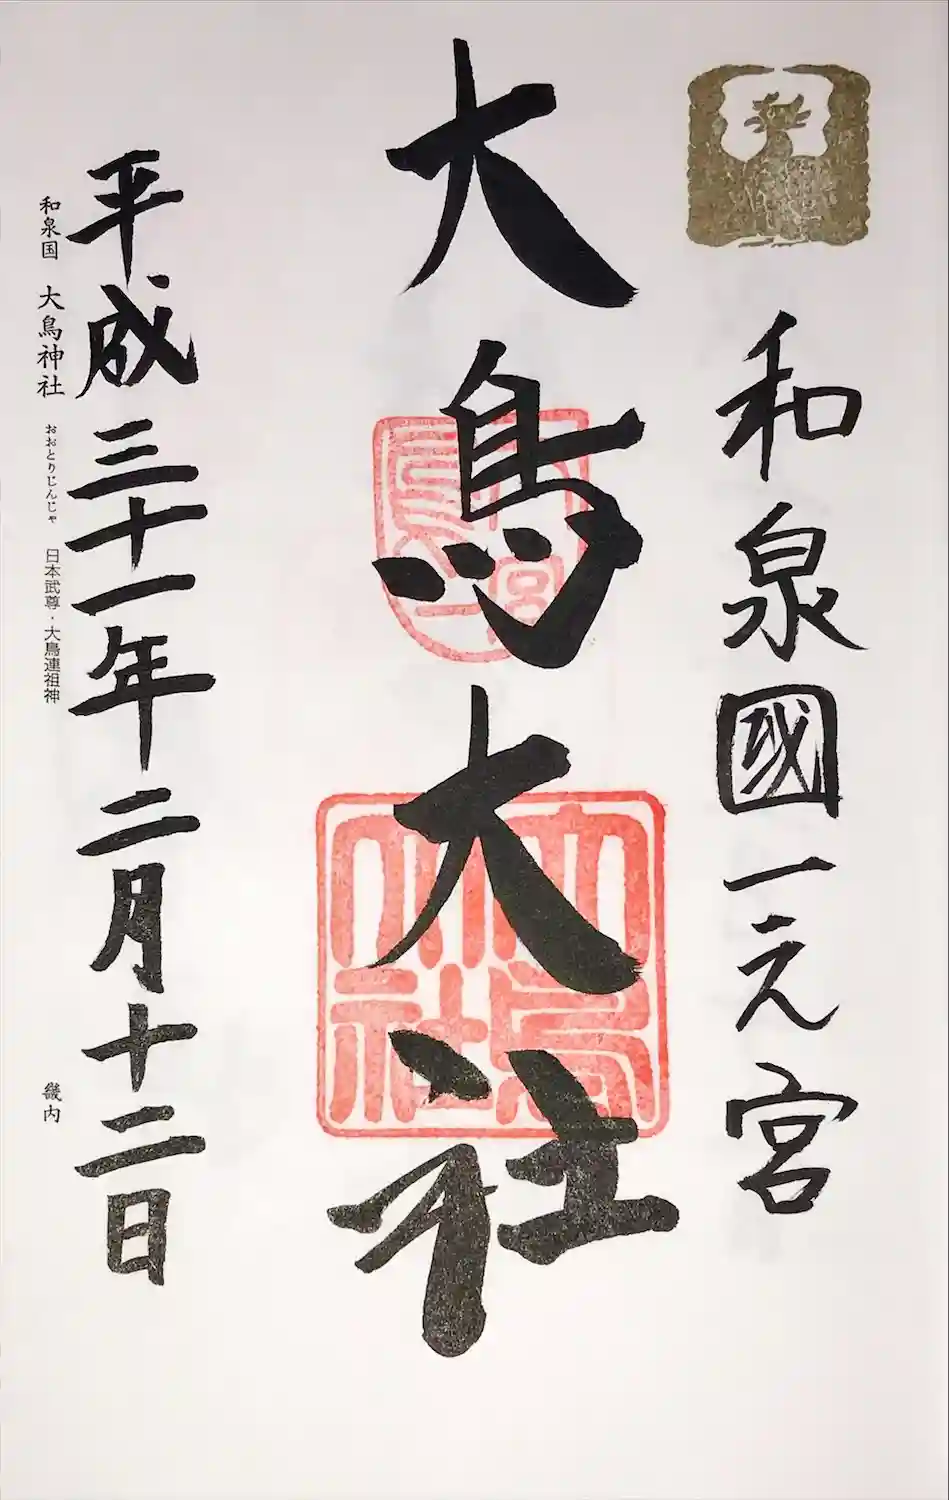 和泉國一之宮
大鳥大社
平成三十一年二月十二日
和泉国 大鳥神社 おおとりじんじゃ 日本武尊・大鳥連祖神 畿内
大鳥大社